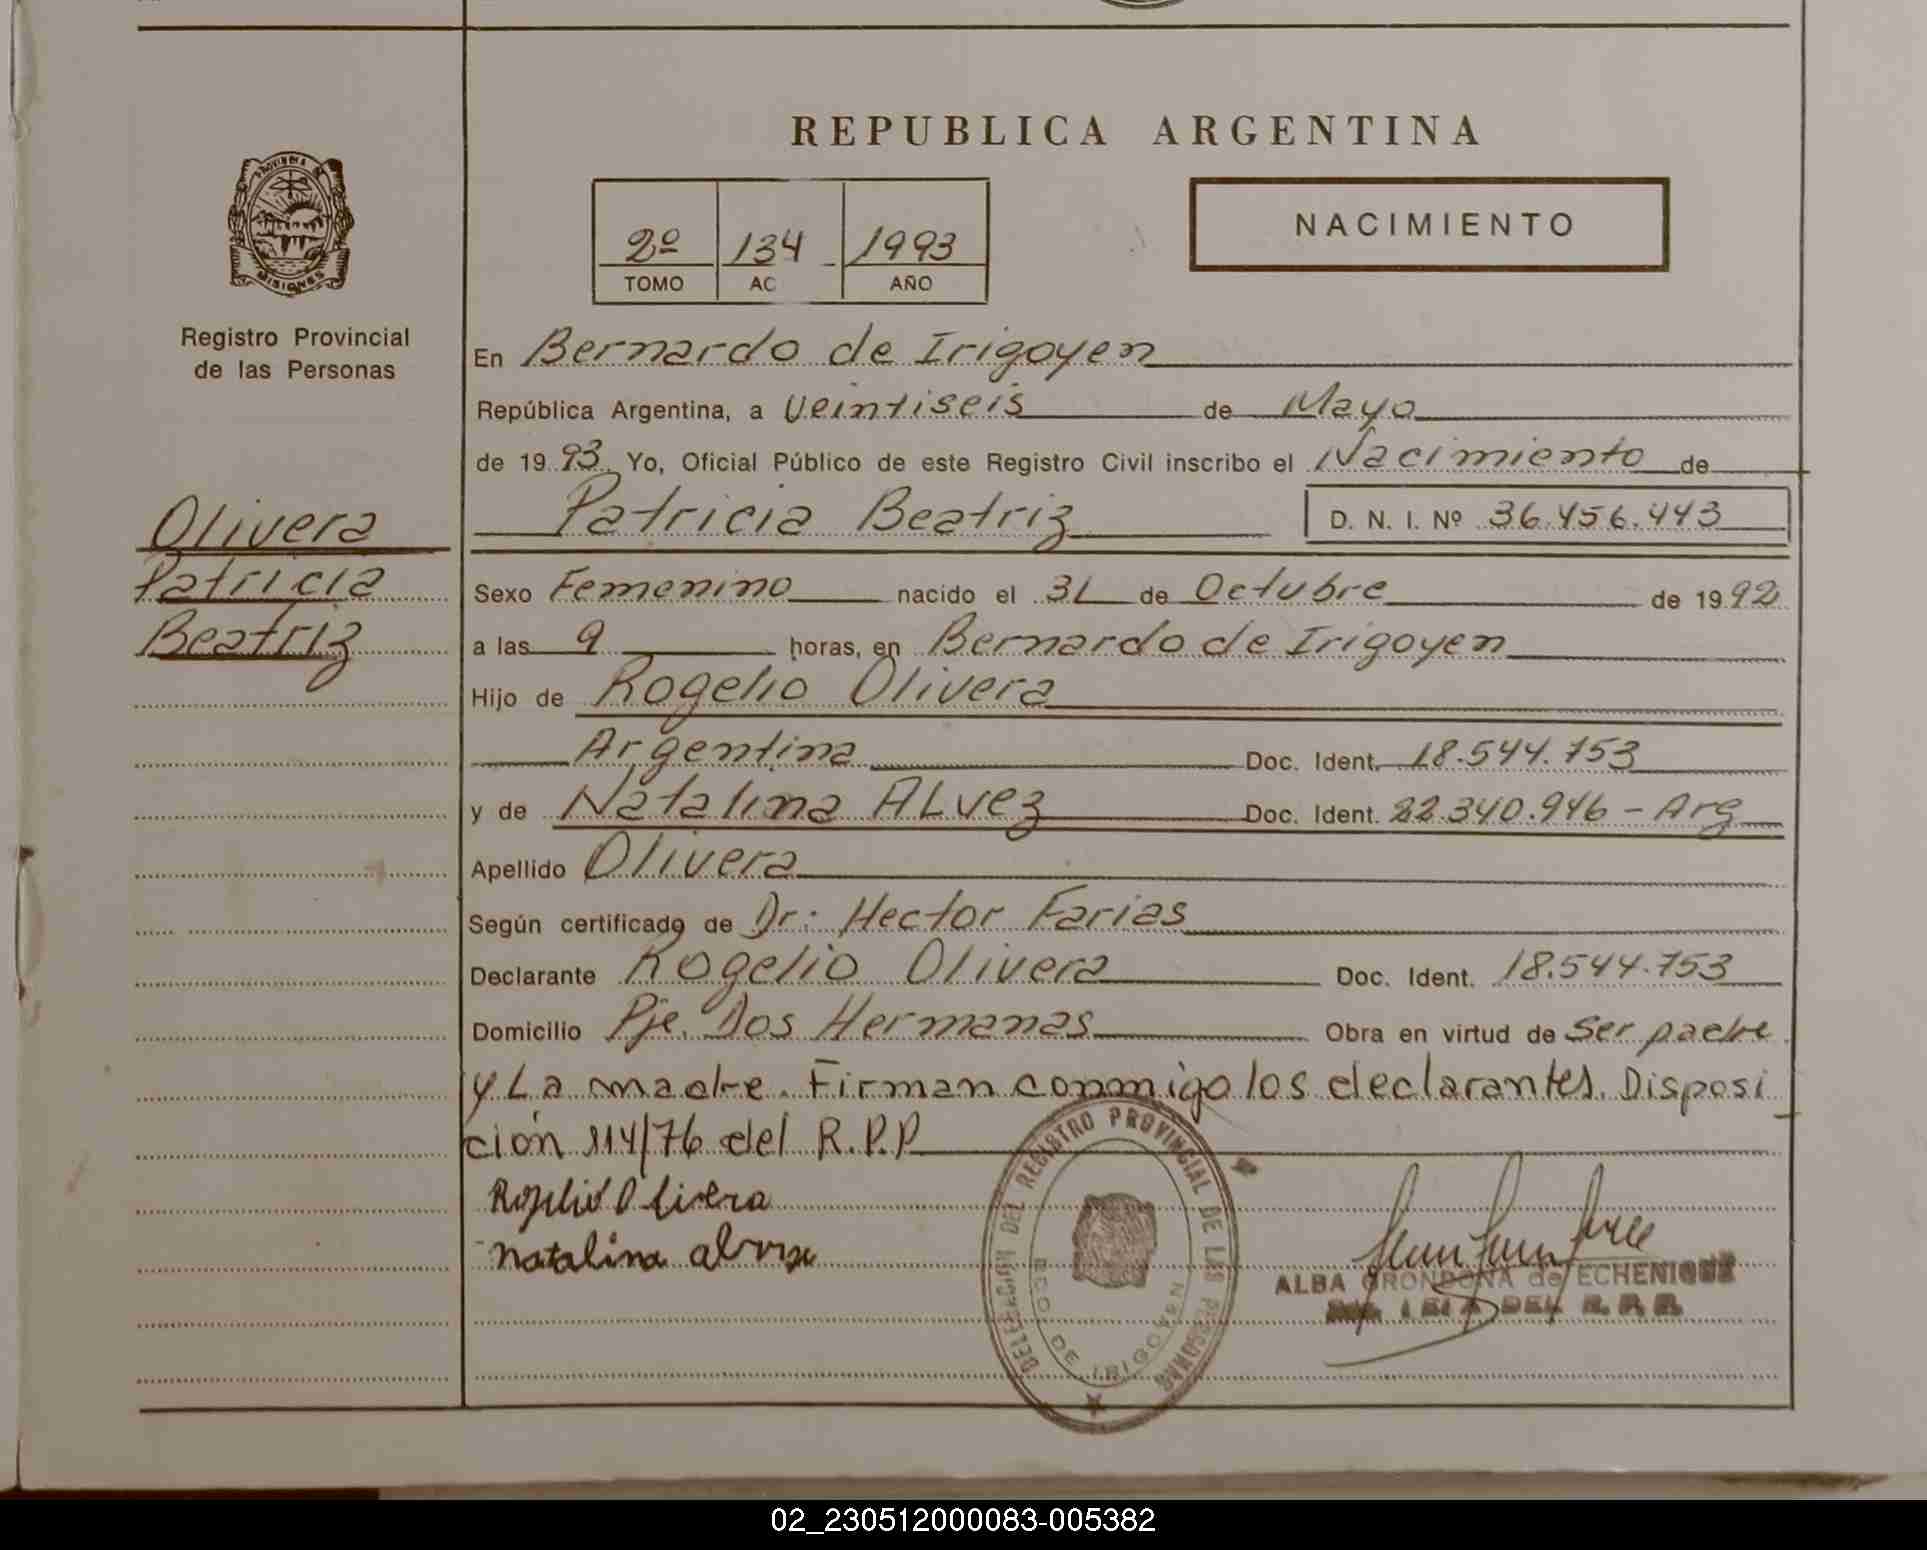 REPUBLICA ARGENTINA
PROVINCIA DE MISIONES
Registro Provincial
de las Personas
2º 134 1993
TOMO AC AÑO
NACIMIENTO
En Bernardo de Irigoyen
República Argentina, a Veintiseis de Mayo
de 1993 Yo, Oficial Público de este Registro Civil inscribo el Nacimiento de
Patricia Beatriz D. N. I. Nº 36.456.443
Olivera
Patricia
Beatriz
Sexo Femenino nacido el 31 de Octubre de 1992
a las 9 horas, en Bernardo de Irigoyen
Hijo de Rogelio Olivera
Argentina Doc. Ident. 18.544.753
y de Natalina ALvez Doc. Ident. 22.340.946 - Arg
Apellido Olivera
Según certificado de Dr: Hector Farias
Declarante Rogelio Olivera Doc. Ident. 18.544.753
Domicilio Pje. Dos Hermanas Obra en virtud de Ser padre
y La madre. Firman conmigo los declarantes. Disposi
ción 114/76 del R.P.P
Rogelio Olivera
Natalina
DELEGACION DEL REGISTRO PROVINCIAL DE LAS PERSONAS
BDO. DE IRIGOYEN
ALBA GRONDONA de ECHENIQUE
DEL R. P. P.
02_230512000083-005382